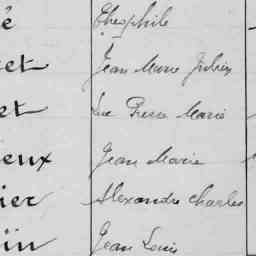 é Théophile
et Jean Marie Julien
et Luc Pierre Marie
eux Jean Marie
ier Alexandre Charles
in Jean Louis